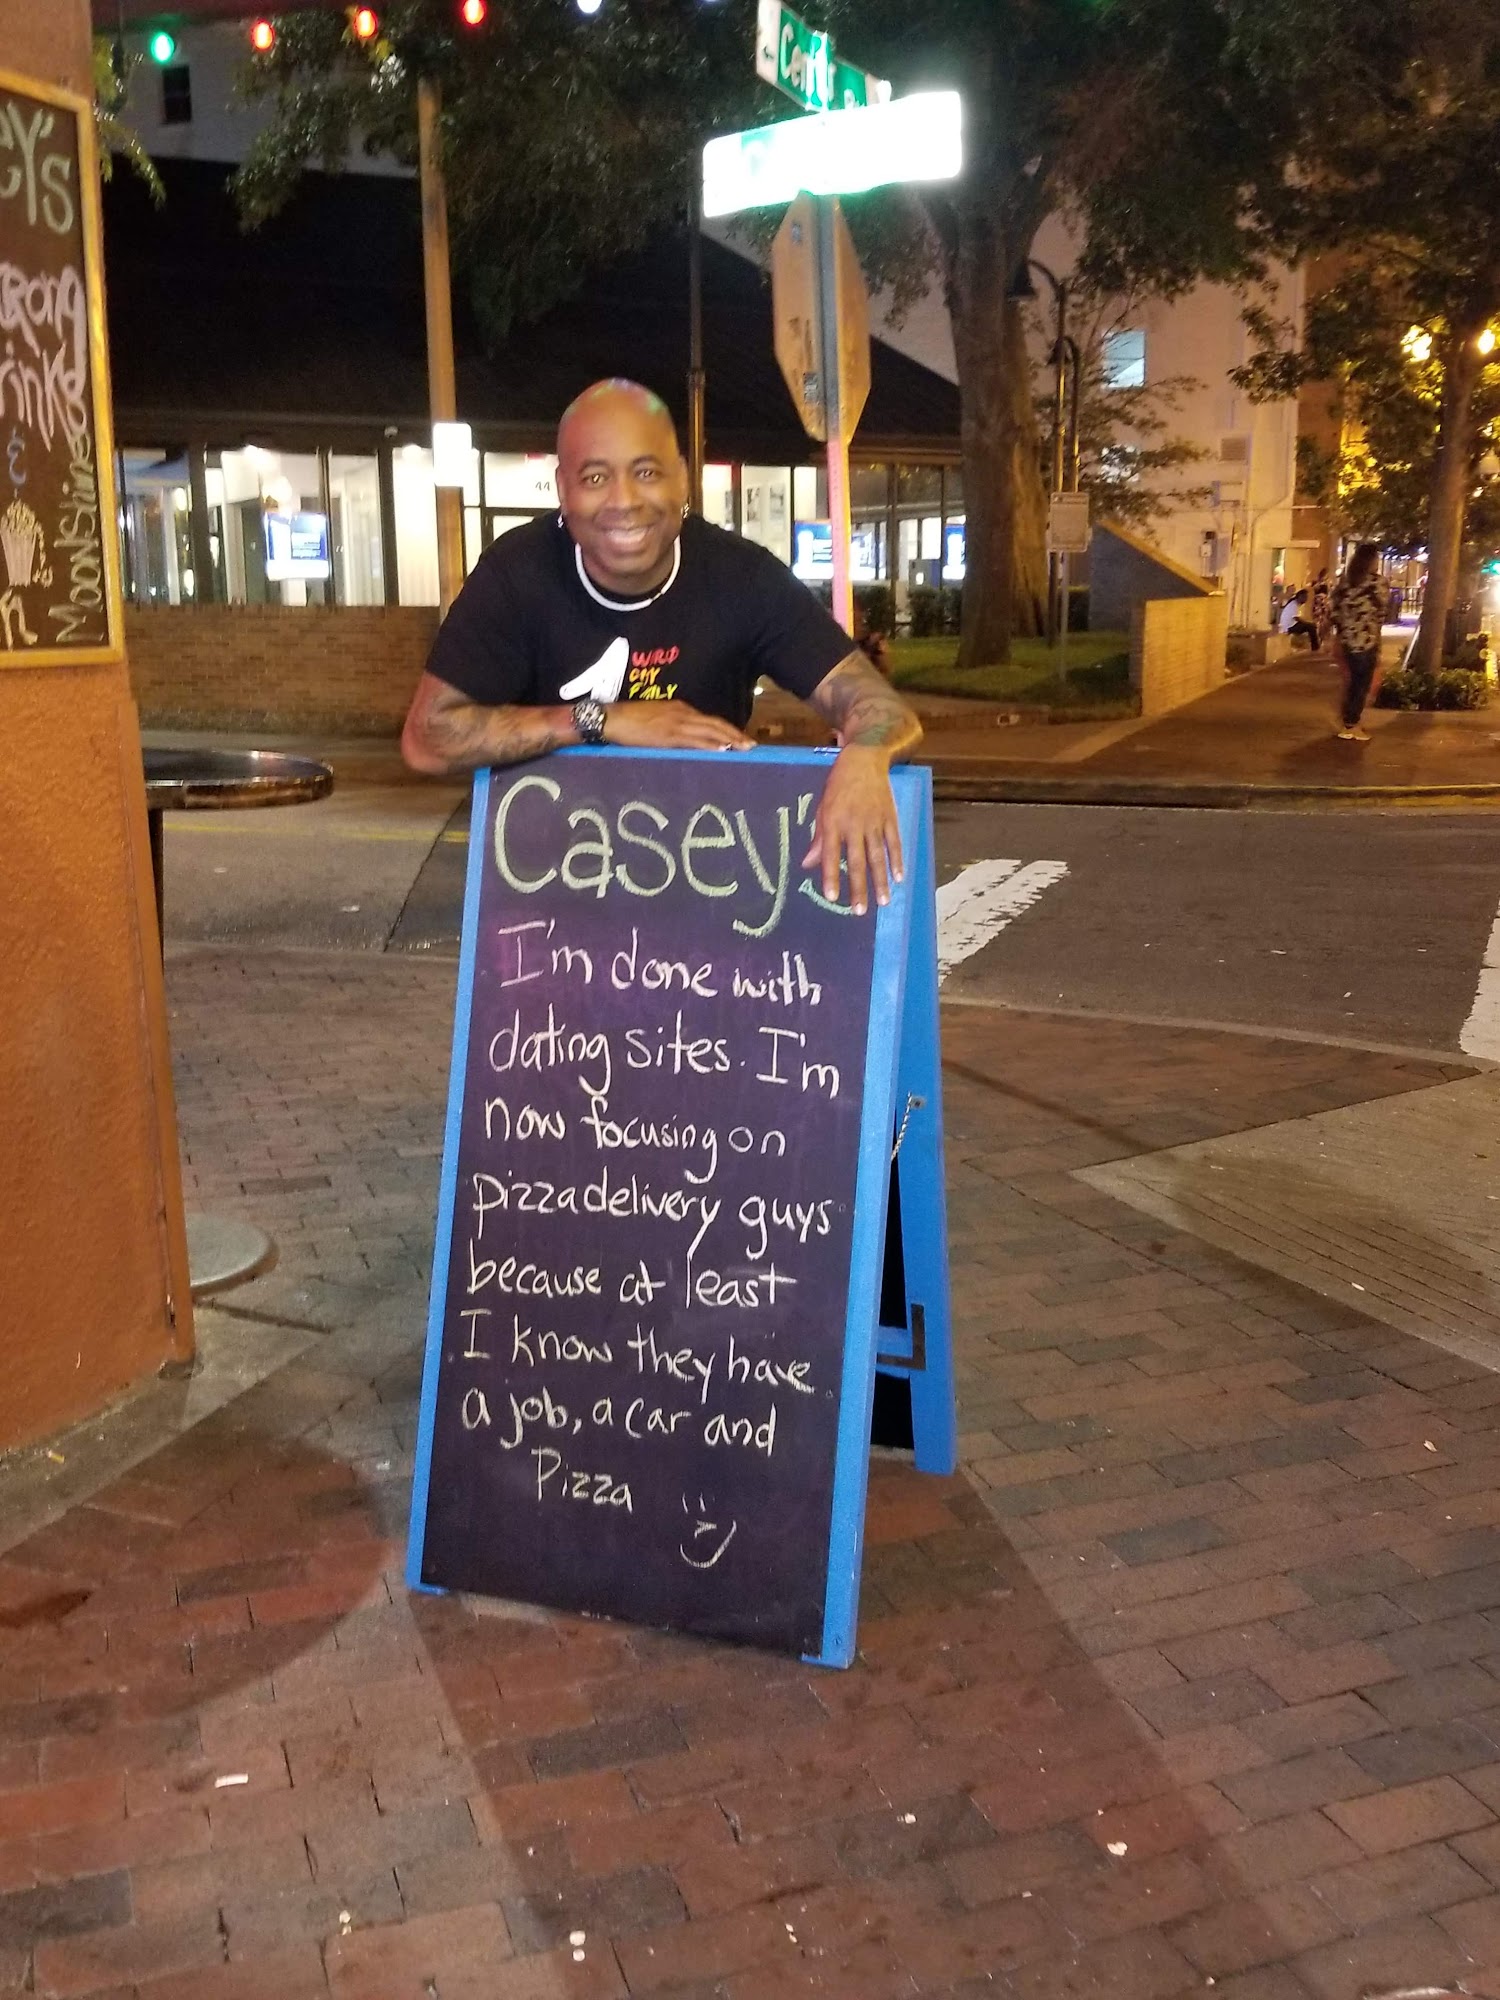 Centr
44
ey's
rong
rinks
&
Moonshine
WORLD
CITY
FAMILY
Casey's
I'm done with
dating sites. I'm
now focusing on
pizza delivery guys
because at least
I know they have
a job, a car and
Pizza